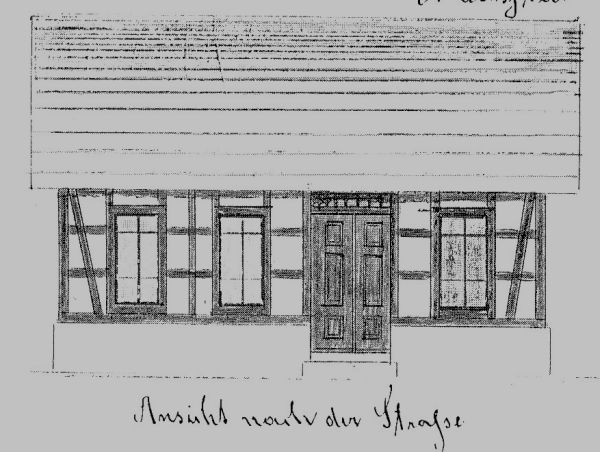 Ansicht nach der Straße